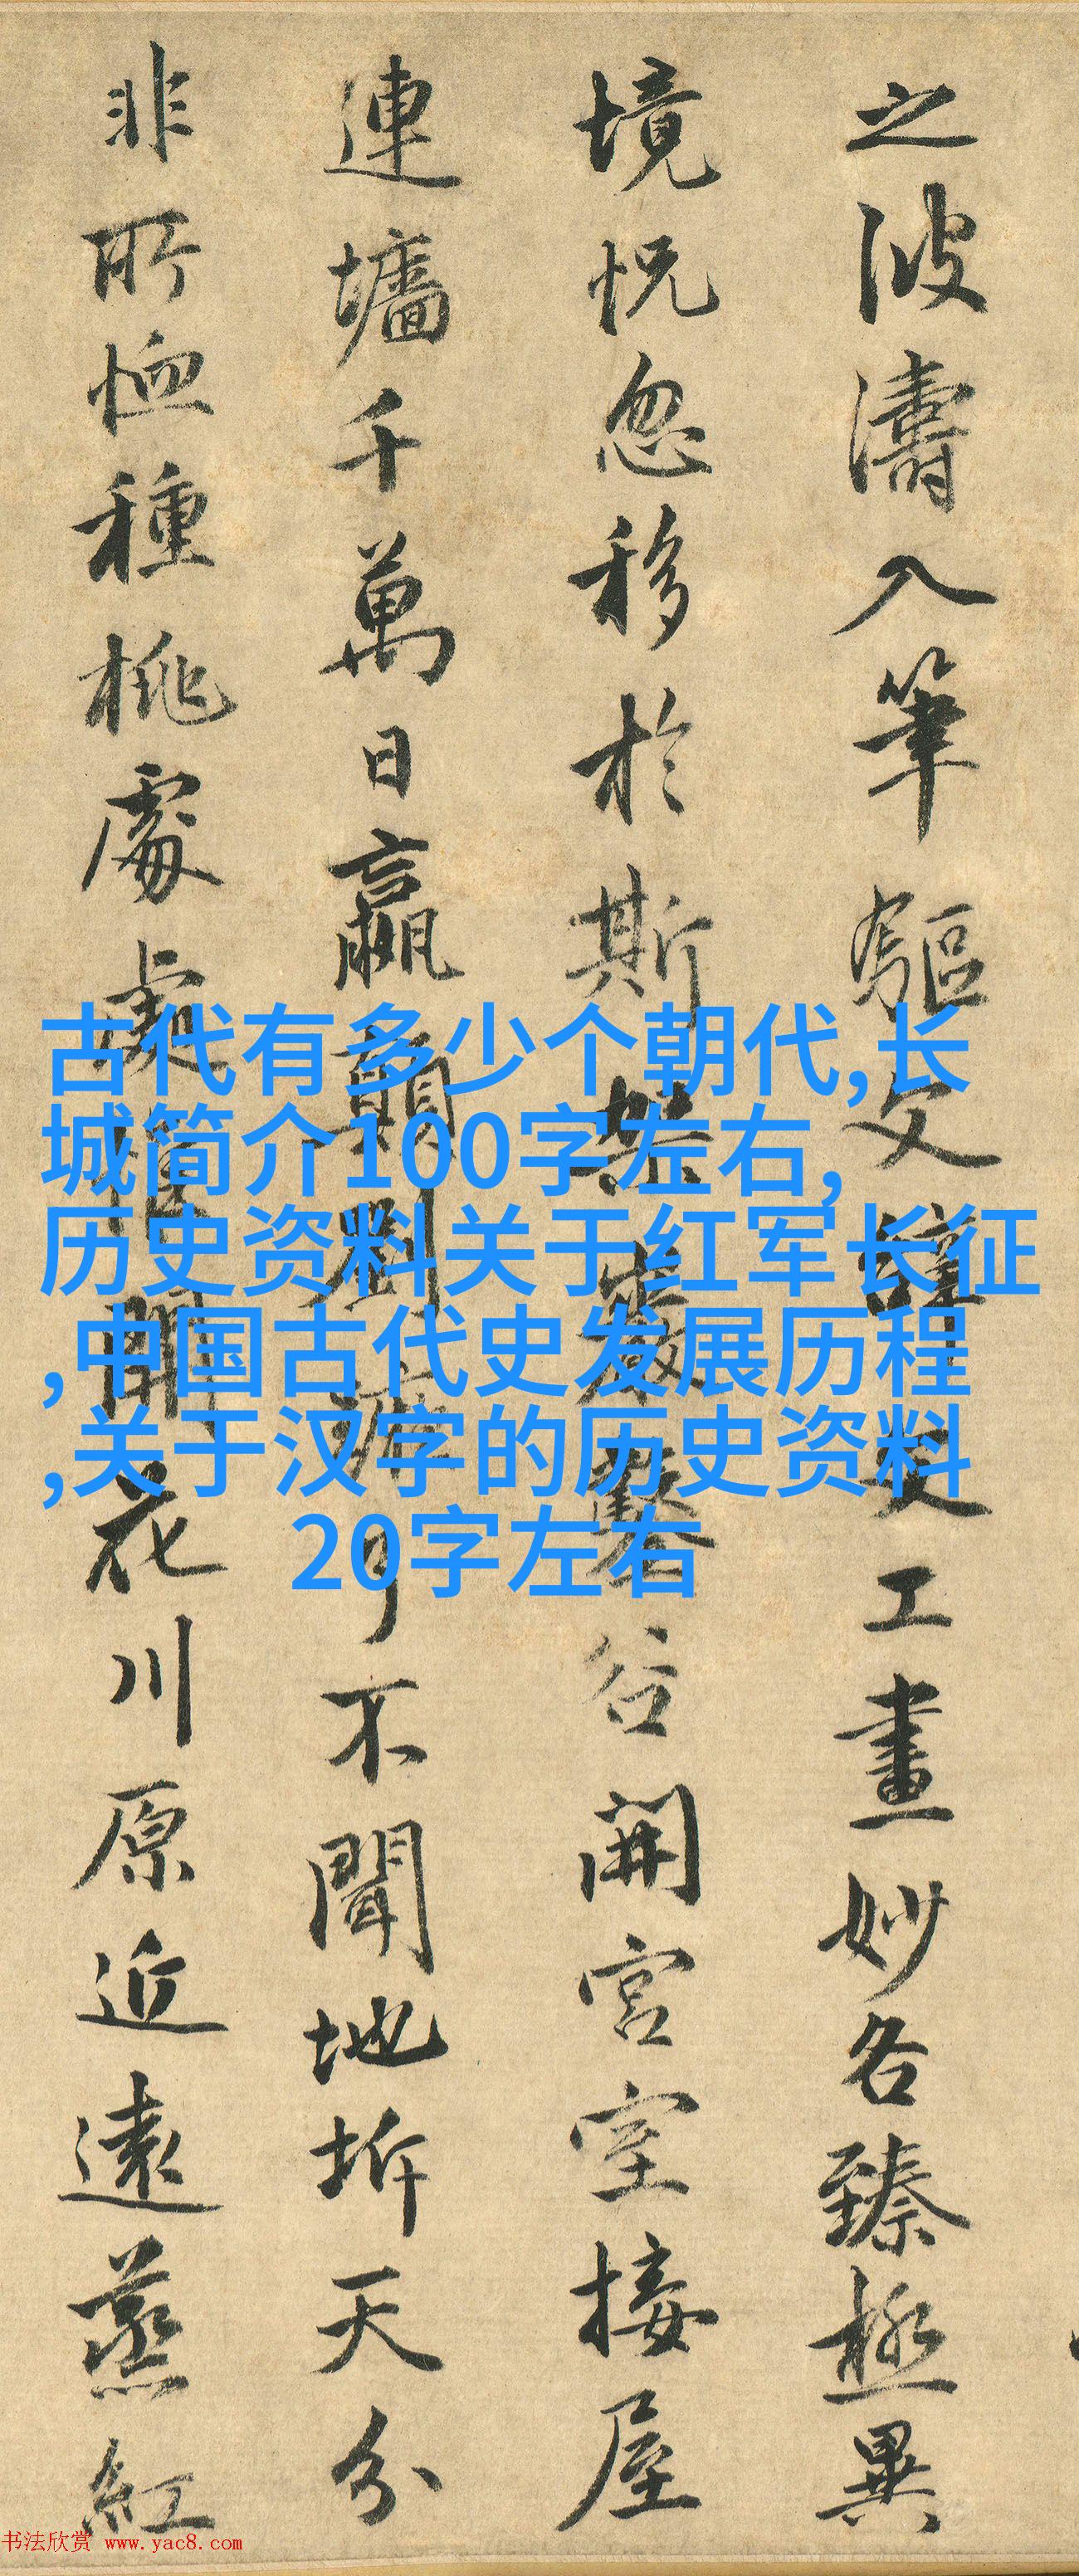 之波濤入筆驅文辭文工畫妙各臻極異
境怳忽移於斯架巖鑿谷開宮室接屋
連墻千萬日嬴顛劉蹶了不聞地坼天分
非所恤種桃處處惟開花川原近遠蒸紅
古代有多少个朝代,长
城简介100字左右,
历史资料关于红军长征
,中国古代史发展历程
,关于汉字的历史资料
20字左右
书法欣赏 www.yac8.com